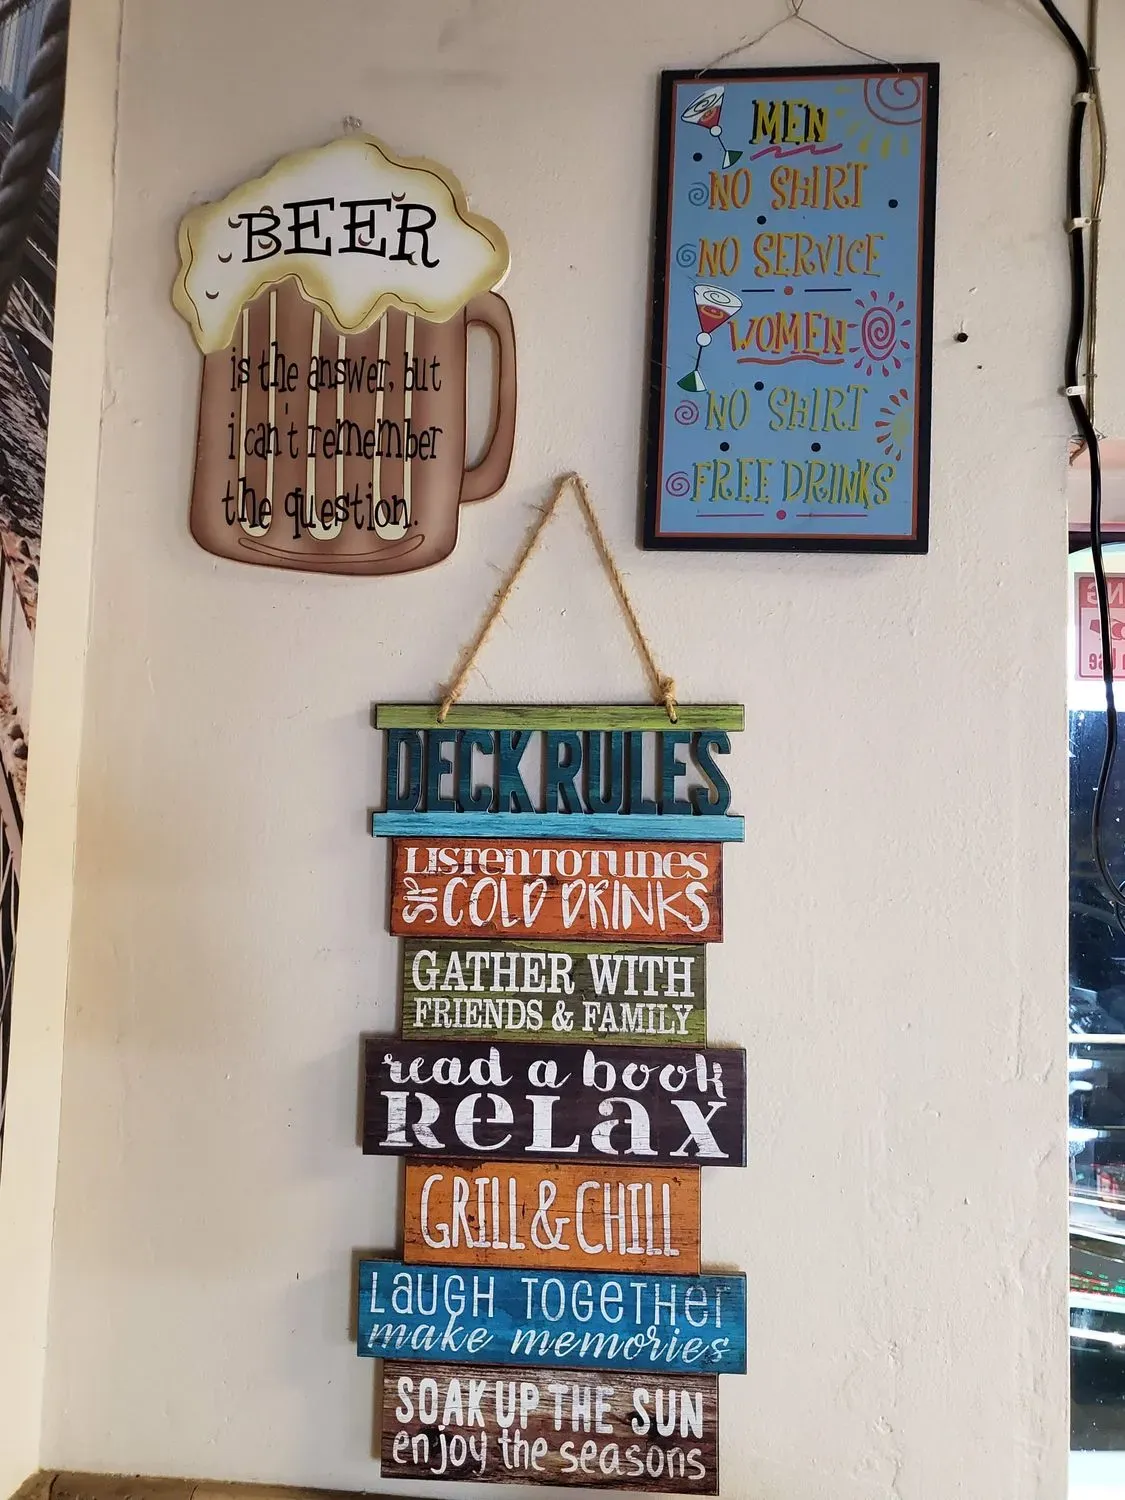 BEER
is the answer, but
i can't remember
the question.
MEN
NO SHIRT
NO SERVICE
WOMEN
NO SHIRT
FREE DRINKS
DECK RULES
LISTEN TO TUNES
SIP COLD DRINKS
GATHER WITH
FRIENDS & FAMILY
read a book
RELAX
GRILL & CHILL
LAUGH TOGETHER
make memories
SOAK UP THE SUN
enjoy the seasons